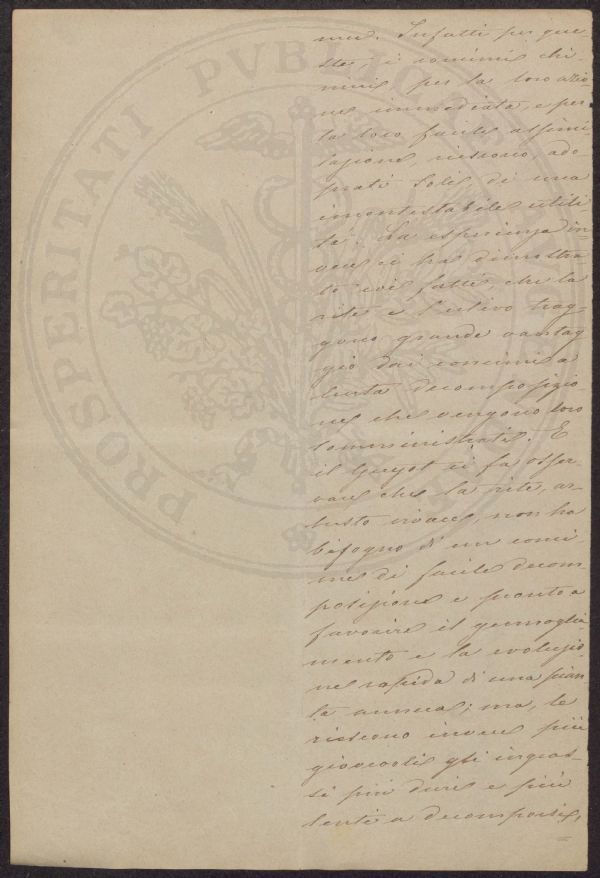 PROSPERITATI PVBLICAE
nue. Infatti per que
ste, i concimi chi-
mici, per la loro azio
ne immediata e per
la loro facile assimi
lazione, riescono, ado
prati soli, di una
incontestabile utili-
tà. La esperienza in
vece ci ha dimostra
to coi fatti, che la
vite e l'ulivo trag-
gono grande vantag
gio dai concimi a
lenta decomposizio-
ne che vengono loro
somministrati. E
il Guyot ci fa osser-
vare che la vite, ar-
busto vivace, non ha
bisogno di un conci
me di facile decom
posizione e pronto a
favorire il germoglia-
mento e la evoluzio-
ne rapida di una pian
ta annua; ma, le
riescono invece più
giovevoli gli ingras-
si più duri e più
lenti a decomporsi,